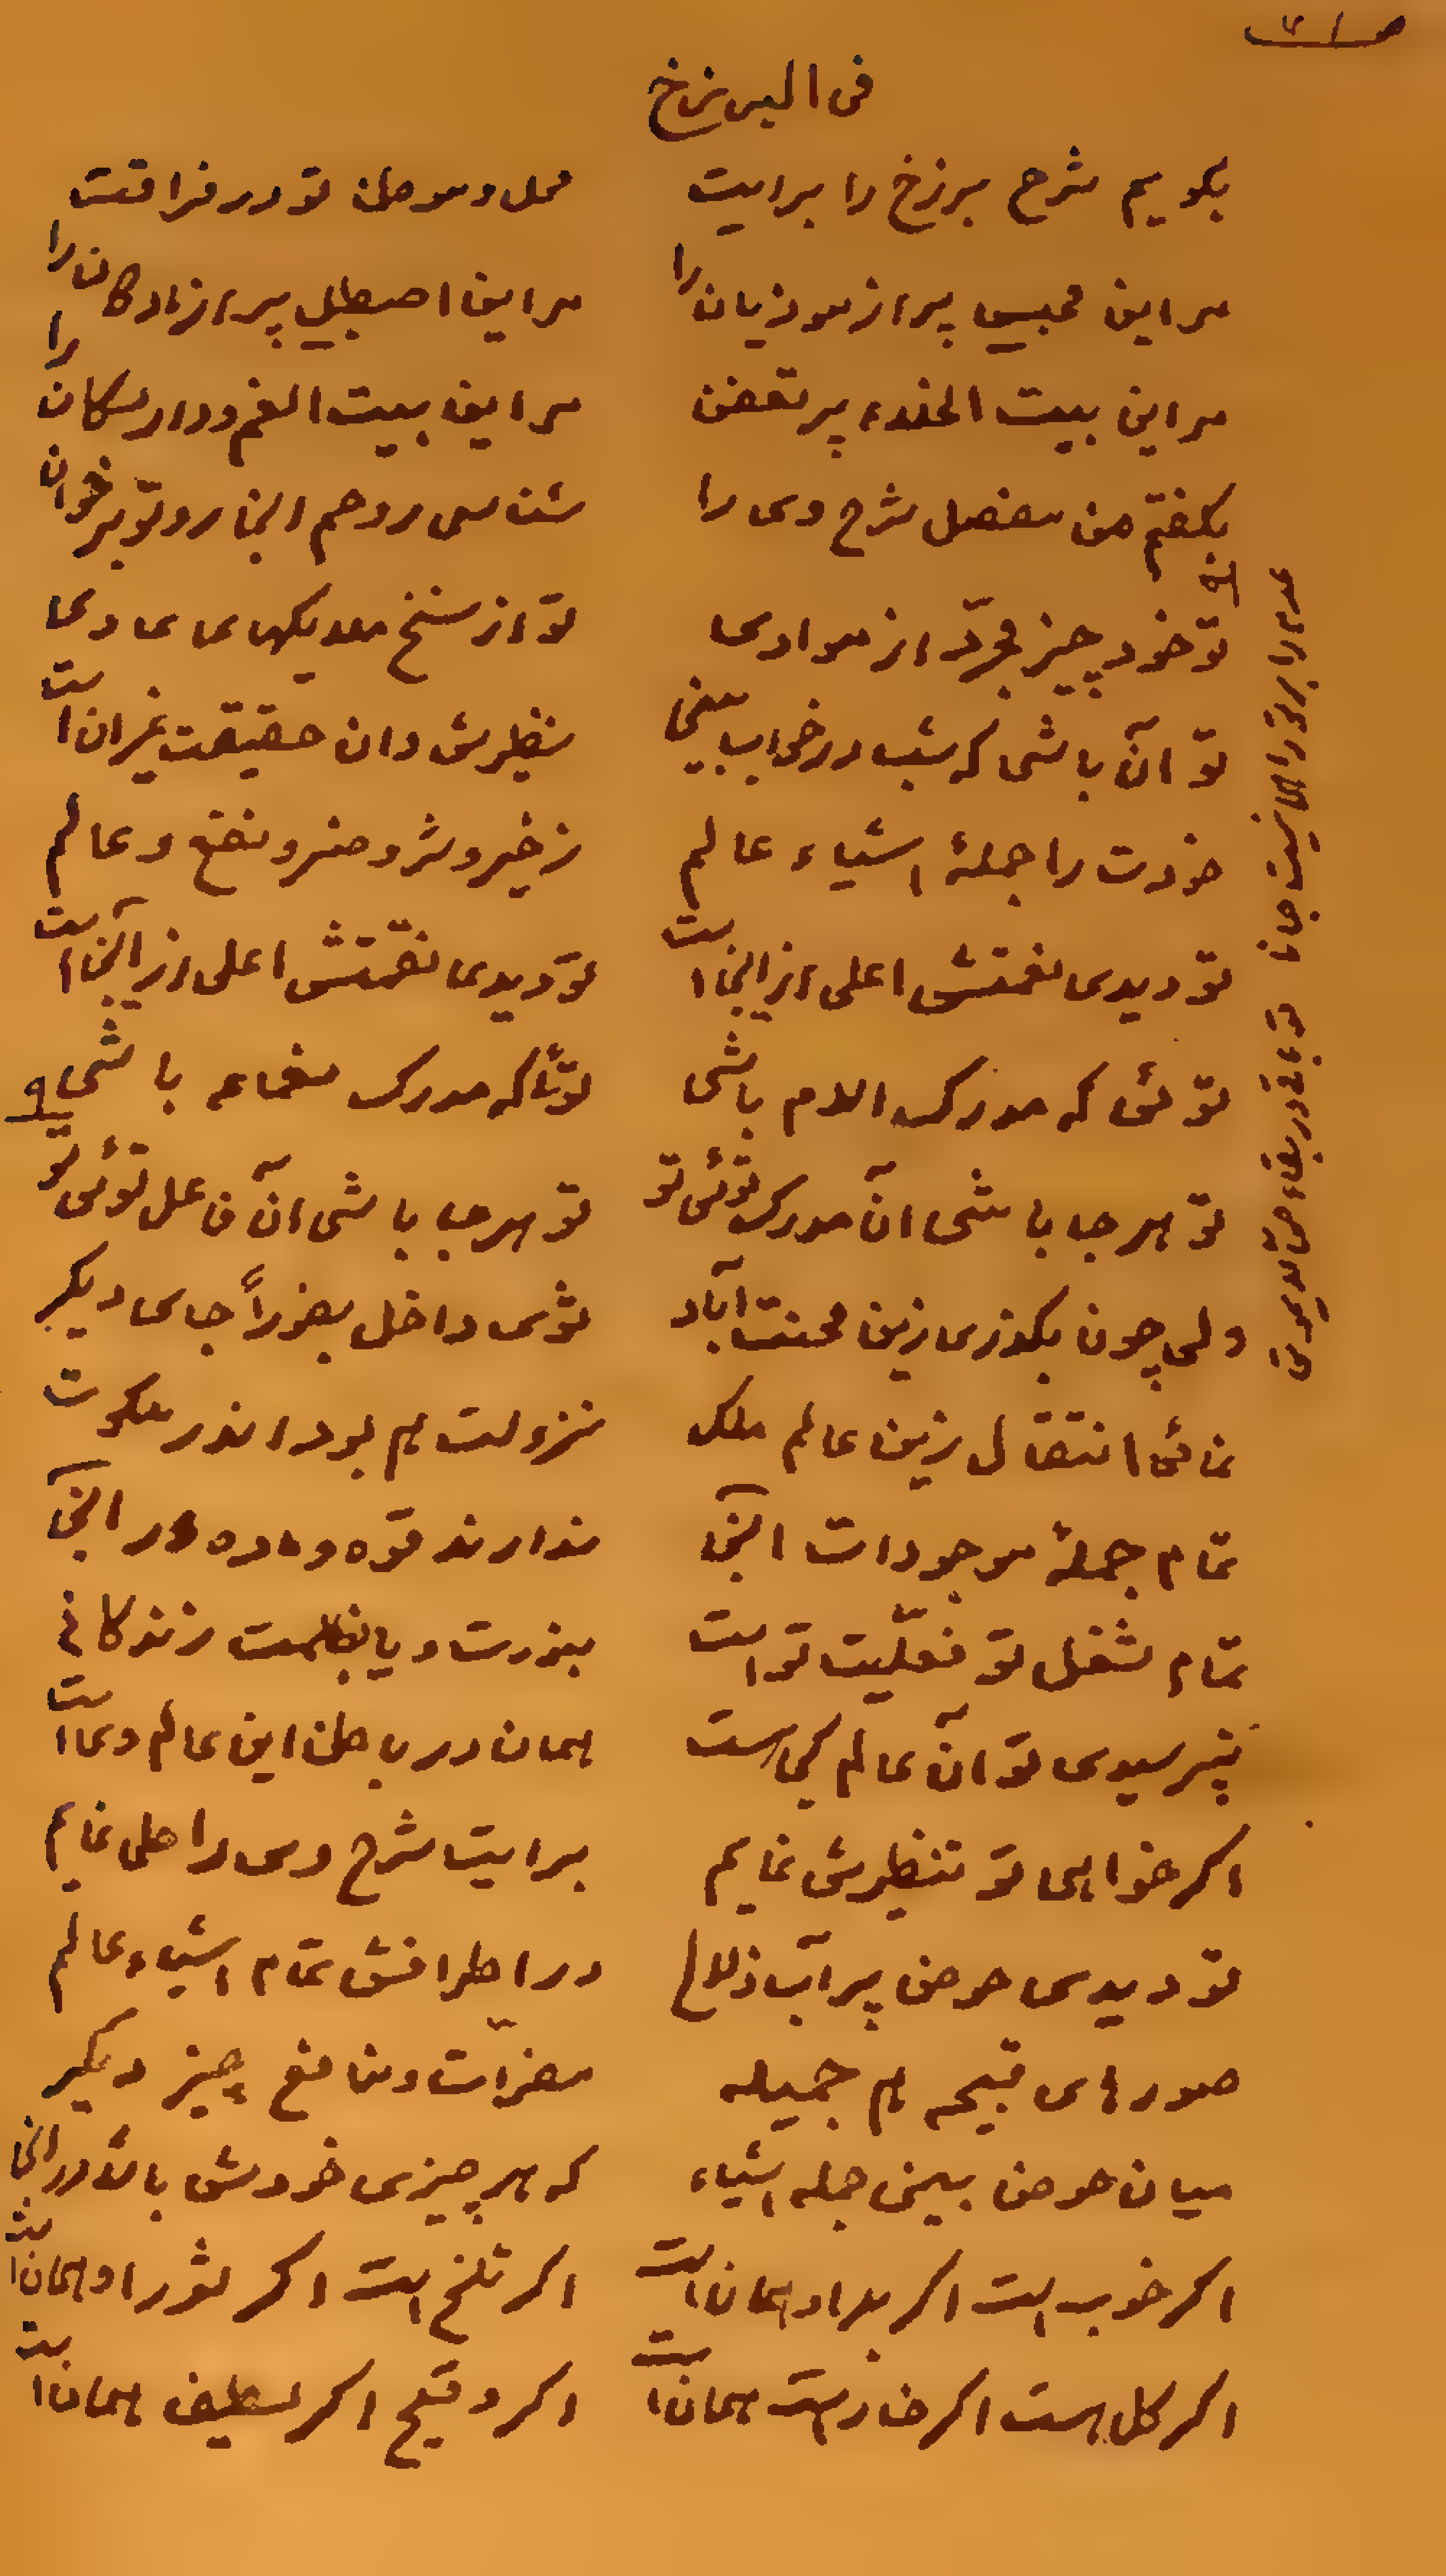 فی البرزخ
بگویم شرح برزخ را برایت محل و موطن تو در فراقت
مر این محبس پر از موذیان را مر این اصطبل پر از مادگان را
مر این بیت الخلاء پر تعفن مر این بیت الغم و دار سکان را
بگفتم من مفصل شرح وی را شناسی روحم اینجا رو تو بر خوان
تو خود چیز مجرّد از موادی تو از سنخ ملایکهای عادی
تو آن باشی که شب در خواب بینی نظیرش دان حقیقت غیر آن است
خودت را جملهٔ اشیاء عالم ز خیر و شر و ضر و نفع و عالم
تو دیدی نعمتش اعلی از اینجا است تو دیدی نقمتش اعلی از اینجا است
توئی که مدرک الام باشی توئی که مدرک نعماء باشی
تو هر جا باشی آن مدرک توئی تو تو هر جا باشی آن فاعل توئی تو
ولی چون بگذری زین محنت آباد شوی داخل بفوراً جای دیگر
نمائی انتقال زین عالم ملک نزولت هم بود اندر ملکوت
تمام جملهٔ موجودات آنجا ندارند قوه و ماده در آنجا
تمام شغل تو فعلیّت تو است بنورت و یا بظلمت زندگانی
بپرسیدی تو آن عالم کجا است همان در باطن این عالم وی است
اگر خواهی تو تنظیرش نمایم برایت شرح وی را حلی نمایم
تو دیدی حوض پر آب زلال در اطرافش تمام اشیاء عالم
صورهای قبیحه هم جمیله مضرّات و منافع چیز دیگر
میان حوض بینی جمله اشیاء که هر چیزی خودش باشد در آنجا
اگر خوب است اگر بد او همان است اگر تلخ است اگر شور او همان است
اگر گل هست اگر خار است همان است اگر وقیح اگر لطیف همان است